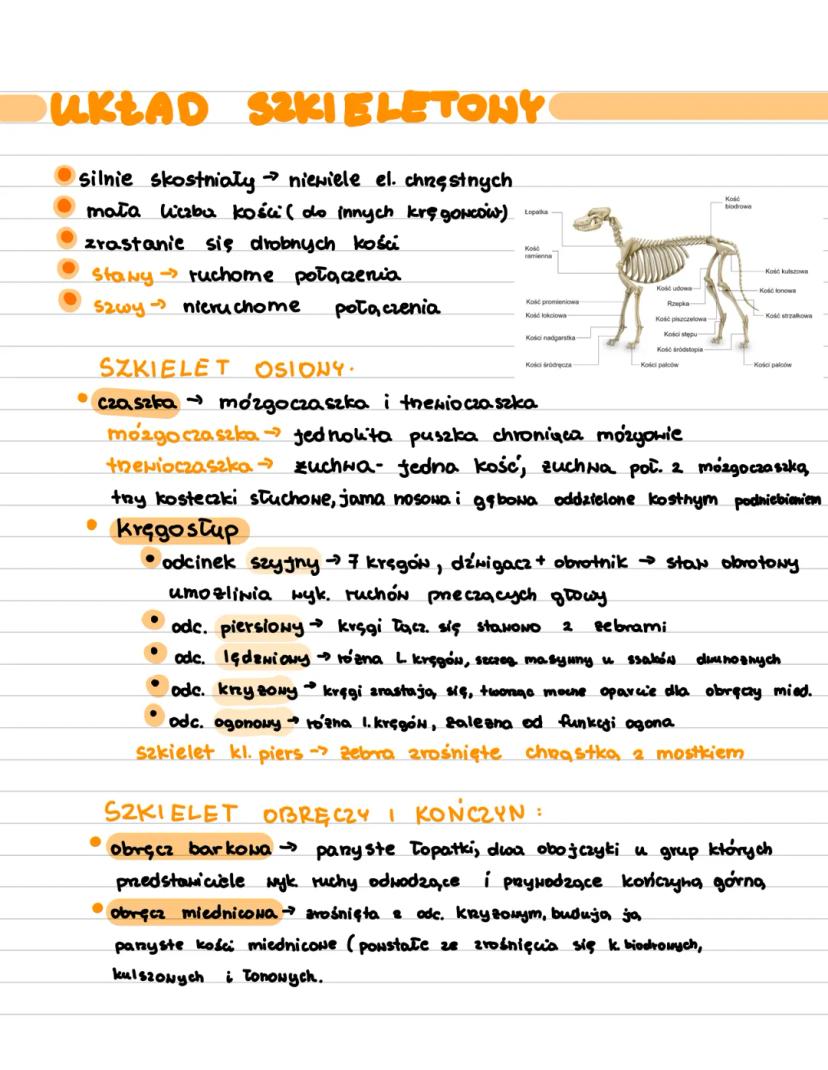 UKŁAD SZKIELETOWY
silnie skostniały → niewiele el. chrzęstnych
mała liczba kości (do innych kręgowców)
zrastanie się drobnych kości
stawy → ruchome połączenia
szwy → nieruchome połączenia
Łopatka
Kość biodrowa
Kość ramienna
Kość kulszowa
Kość udowa
Kość łonowa
Kość promieniowa
Rzepka
Kość łokciowa
Kość piszczelowa
Kość strzałkowa
Kości nadgarstka
Kości stępu
Kość śródstopia
Kości śródręcza
Kości palców
Kości palców
SZKIELET OSIOWY.
czaszka → mózgoczaszka i trzewioczaszka
mózgoczaszka → jednolita puszka chroniąca mózgowie
trzewioczaszka → żuchwa- jedna kość, żuchwa poł. z mózgoczaszką,
trzy kosteczki słuchowe, jama nosowa i gębowa oddzielone kostnym podniebieniem
kręgosłup
odcinek szyjny → 7 kręgów, dźwigacz + obrotnik → staw obrotowy
umożliwia wyk. ruchów przeczących głowy
odc. piersiowy → kręgi łącz. się stawowo z żebrami
odc. lędźwiowy → różna l. kręgów, szczeg. masywny u ssaków dwunożnych
odc. krzyżowy → kręgi zrastają się, tworząc mocne oparcie dla obręczy mied.
odc. ogonowy → różna l. kręgów, zależna od funkcji ogona
szkielet kl. piers → żebra zrośnięte chrząstką z mostkiem
SZKIELET OBRĘCZY I KOŃCZYN :
obręcz barkowa → parzyste łopatki, dwa obojczyki u grup których
przedstawiciele wyk. ruchy odwodzące i przywodzące kończyną górną
obręcz miednicowa → zrośnięta z odc. krzyżowym, budują ją
parzyste kości miednicowe (powstałe ze zrośnięcia się k. biodrowych,
kulszowych i łonowych.